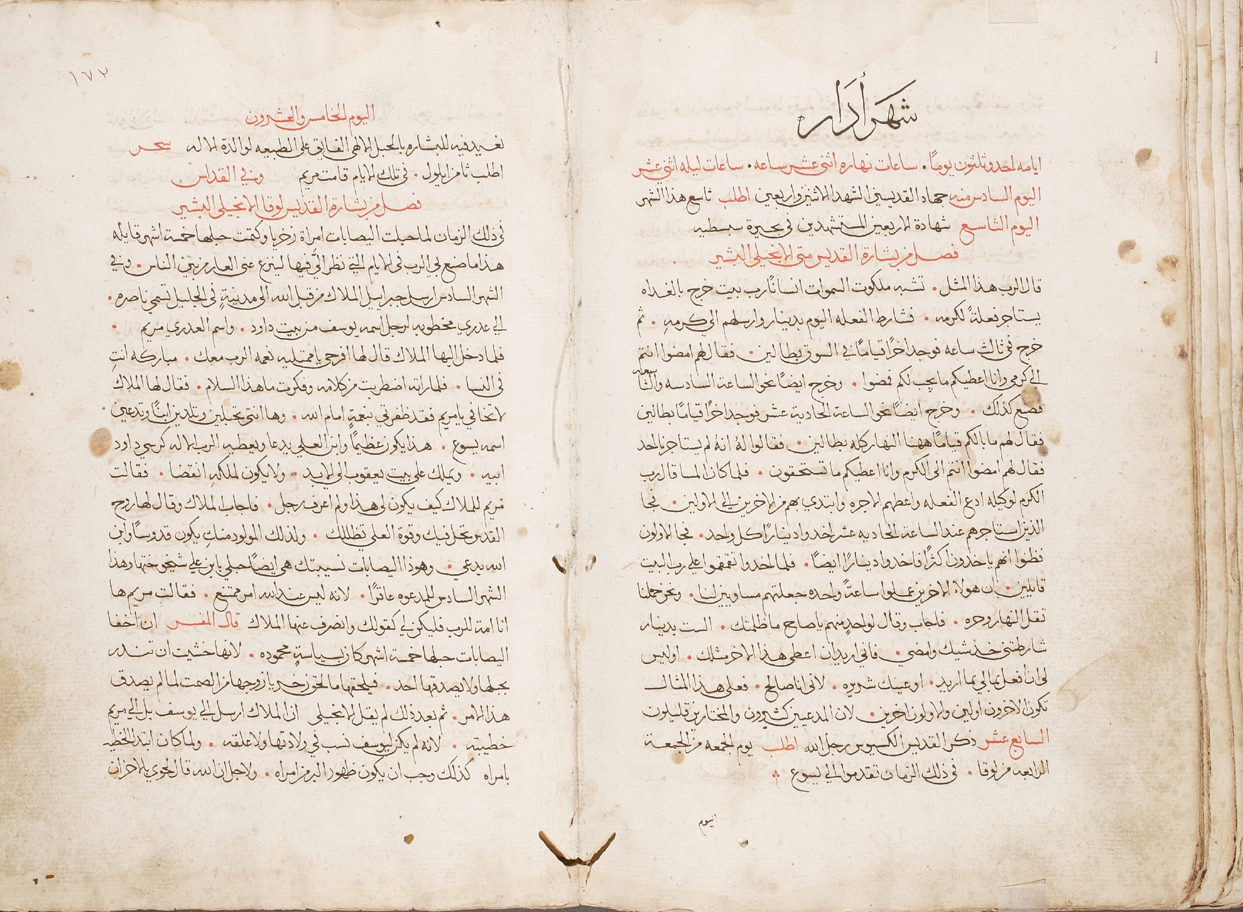 شهر أدَار
ايامه احد وثلثون يومًا. ساعات نهاره اثني عشر ساعه. ساعات ليله اثني عشر
اليوم السادس منه جهاد القديسين الشهدا الاثنين واربعين اطلب تاسع هذا الشهر
اليوم التاسع شهادة الاربعين المستشهدين في بحيرة سبسطيه
فصل من بشارة القديس متى الانجيلي البشير
قال الرب هذا المثل. تشبه ملكوت السموات انسانًا رب بيت خرج بالغداه
يستاجر فعلةً لكرمه. فشارط الفعله اليوم بدينار وارسلهم الي كرمه. ثم
خرج في ثالث ساعه فوجد اخرًا قيامًا في السوق بطالين. فقال لهم امضوا انتم
الي كرمي وانا اعطيكم ما يجب لكم فمضوا. وخرج ايضًا نحو الساعة السادسه والتاسعه
فصنع كذلك. وخرج ايضًا نحو الساعة الحادية عشر فوجد اخرًا قيامًا بطالين
فقال لهم ما بالكم قيامًا ههنا النهار كله بطالين. فقالوا له انه لم يستاجرنا احد
فقال لهم امضوا انتم الى الكرم وانا اعطيكم ما تستحقون. فلما كان المسا قال رب
الكرم لوكيله ادع الفعله واعطهم الاجره وابتدي بهم من الاخرين الي الاولين. فجا
الذين استاجرهم عند الساعة الحاديه عشر اخذوا دينارًا كل واحد. فجا الاولون
فظنوا انهم ياخذون اكثر فاخذوا دينارًا ايضًا. فلما اخذوا تقمقموا على رب البيت
قايلين. ان هولاء الاخرين عملوا ساعةً واحده جعلتهم مساويين لنا. ونحن حملنا
ثقل النهار وحره. فاجاب وقال لواحدٍ منهم يا صاحِ ما ظلمتك. الست بدينار
شارطتني خذ شيك وامضي. فاني اريد ان اعطي هذا الاخر مثلك. اوليس
لي ان افعل بمالي بما اريد. او عينك شريره. لاني انا صالح. فعلى هذا المثال
تكون الاخرون اولين والاولون اخرين. لان المدعيين كثيرون والمختارين قليلون
السابع عشر ذكر القديس الكسيوس رجل الله اطلب يوم الجمعه من الجمعة
الرابعه من لوقا. في ذلك الزمان تقدموا الي يسوع
اليوم
١٧٢
اليوم الخامس والعشرون
نعيد فيه للبشاره بالحبل الالهي الفايق على الطبيعه لوالدة الاله سحر
اطلب ثامن ايلول. في تلك الايام قامت مريم وفي القداس
فصل من بشارة القديس لوقا الانجيلي البشير
في ذلك الزمان لما حبلت اليصابات امراة زخريا وكتمت حبلها خمسة اشهر قايله
هذا ما صنع لي الرب في الايام التي نظر الَي فيها لينزع عني العار من بين الناس. وفي
الشهر السادس ارسل جبراييل الملاك من قبل الله الى مدينةٍ في الجليل تسمي ناصره.
الي عدري مخطوبه لرجل اسمه يوسف من بيت داود. واسم العدري مريم.
فلما دخل اليها الملاك قال لها افرحي يا ممتليه نعمه الرب معك. مباركه انتِ
في النسا. فلما راته اضطربت من كلامه وفكرت ما هذا السلام. فقال لها الملاك
لا تخافي يا مريم فقد ظفرتي بنعمةٍ امام الله. وها انتي تحبلين وتلدين ابنًا وتدعي
اسمه يسوع. هذا يكون عظيمًا وابن العلي يدعا ويعطيه الرب الاله كرسي داود
ابيه. ويملك علي بيت يعقوب الي الابد. ولا يكون لملكه انقضا. فقالت
مريم للملاك كيف يكون لي هذا ولم اعرف رجل. فاجاب الملاك وقال لها روح
القدس تحل فيك وقوة العلي تظللك. ولذلك المولود منك يكون قدوسًا وابن
الله يدعي. وهوذا اليصابات نسيبتك هي ايضًا حبلي بابنٍ علي شيخوختها وهذا
الشهر السادس للمدعوه عاقرًا. لانه ليس عند الله امر ممتنع. فقالت مريم ها
انا امة للرب فليكن لي كقولك وانصرف عنها الملاك قال المفسر ان اخفا
اليصابات حبلها خمسة اشهر كان لسياسةٍ محموده. لانها خشيت ان تنذر
بحبلها ولا يصدقها احد. فيلحقها ما لحق زخريا زوجها من الصمت لما لم يصدق
هذا الامر. ثم بعد ذلك لم يقل الانجيلي ان الملاك ارسل الي يوسف بل الي مريم
خطيبته. لانه لم يكن ليوسف نسب في ولادتها ولا علقه. ولما كان ابتد الخطيه
بامراه كذلك وجب ان يكون ظهور البر من امراه. ولاجل ان الله قال لحوي بالاحزان